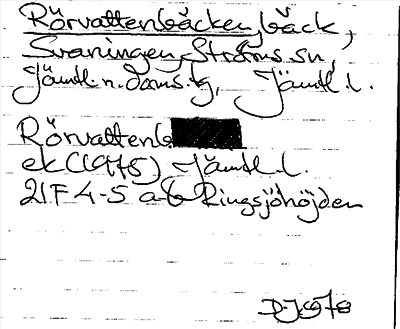 Rörvattenbäcken, bäck,
Svaningen, Ströms sn,
Jämtl. n. doms. tg, Jämtl. l.
Rörvattenb
ek (1978) Jämtl. l.
21F 4-5 a-b Ringsjöhöjden
1978